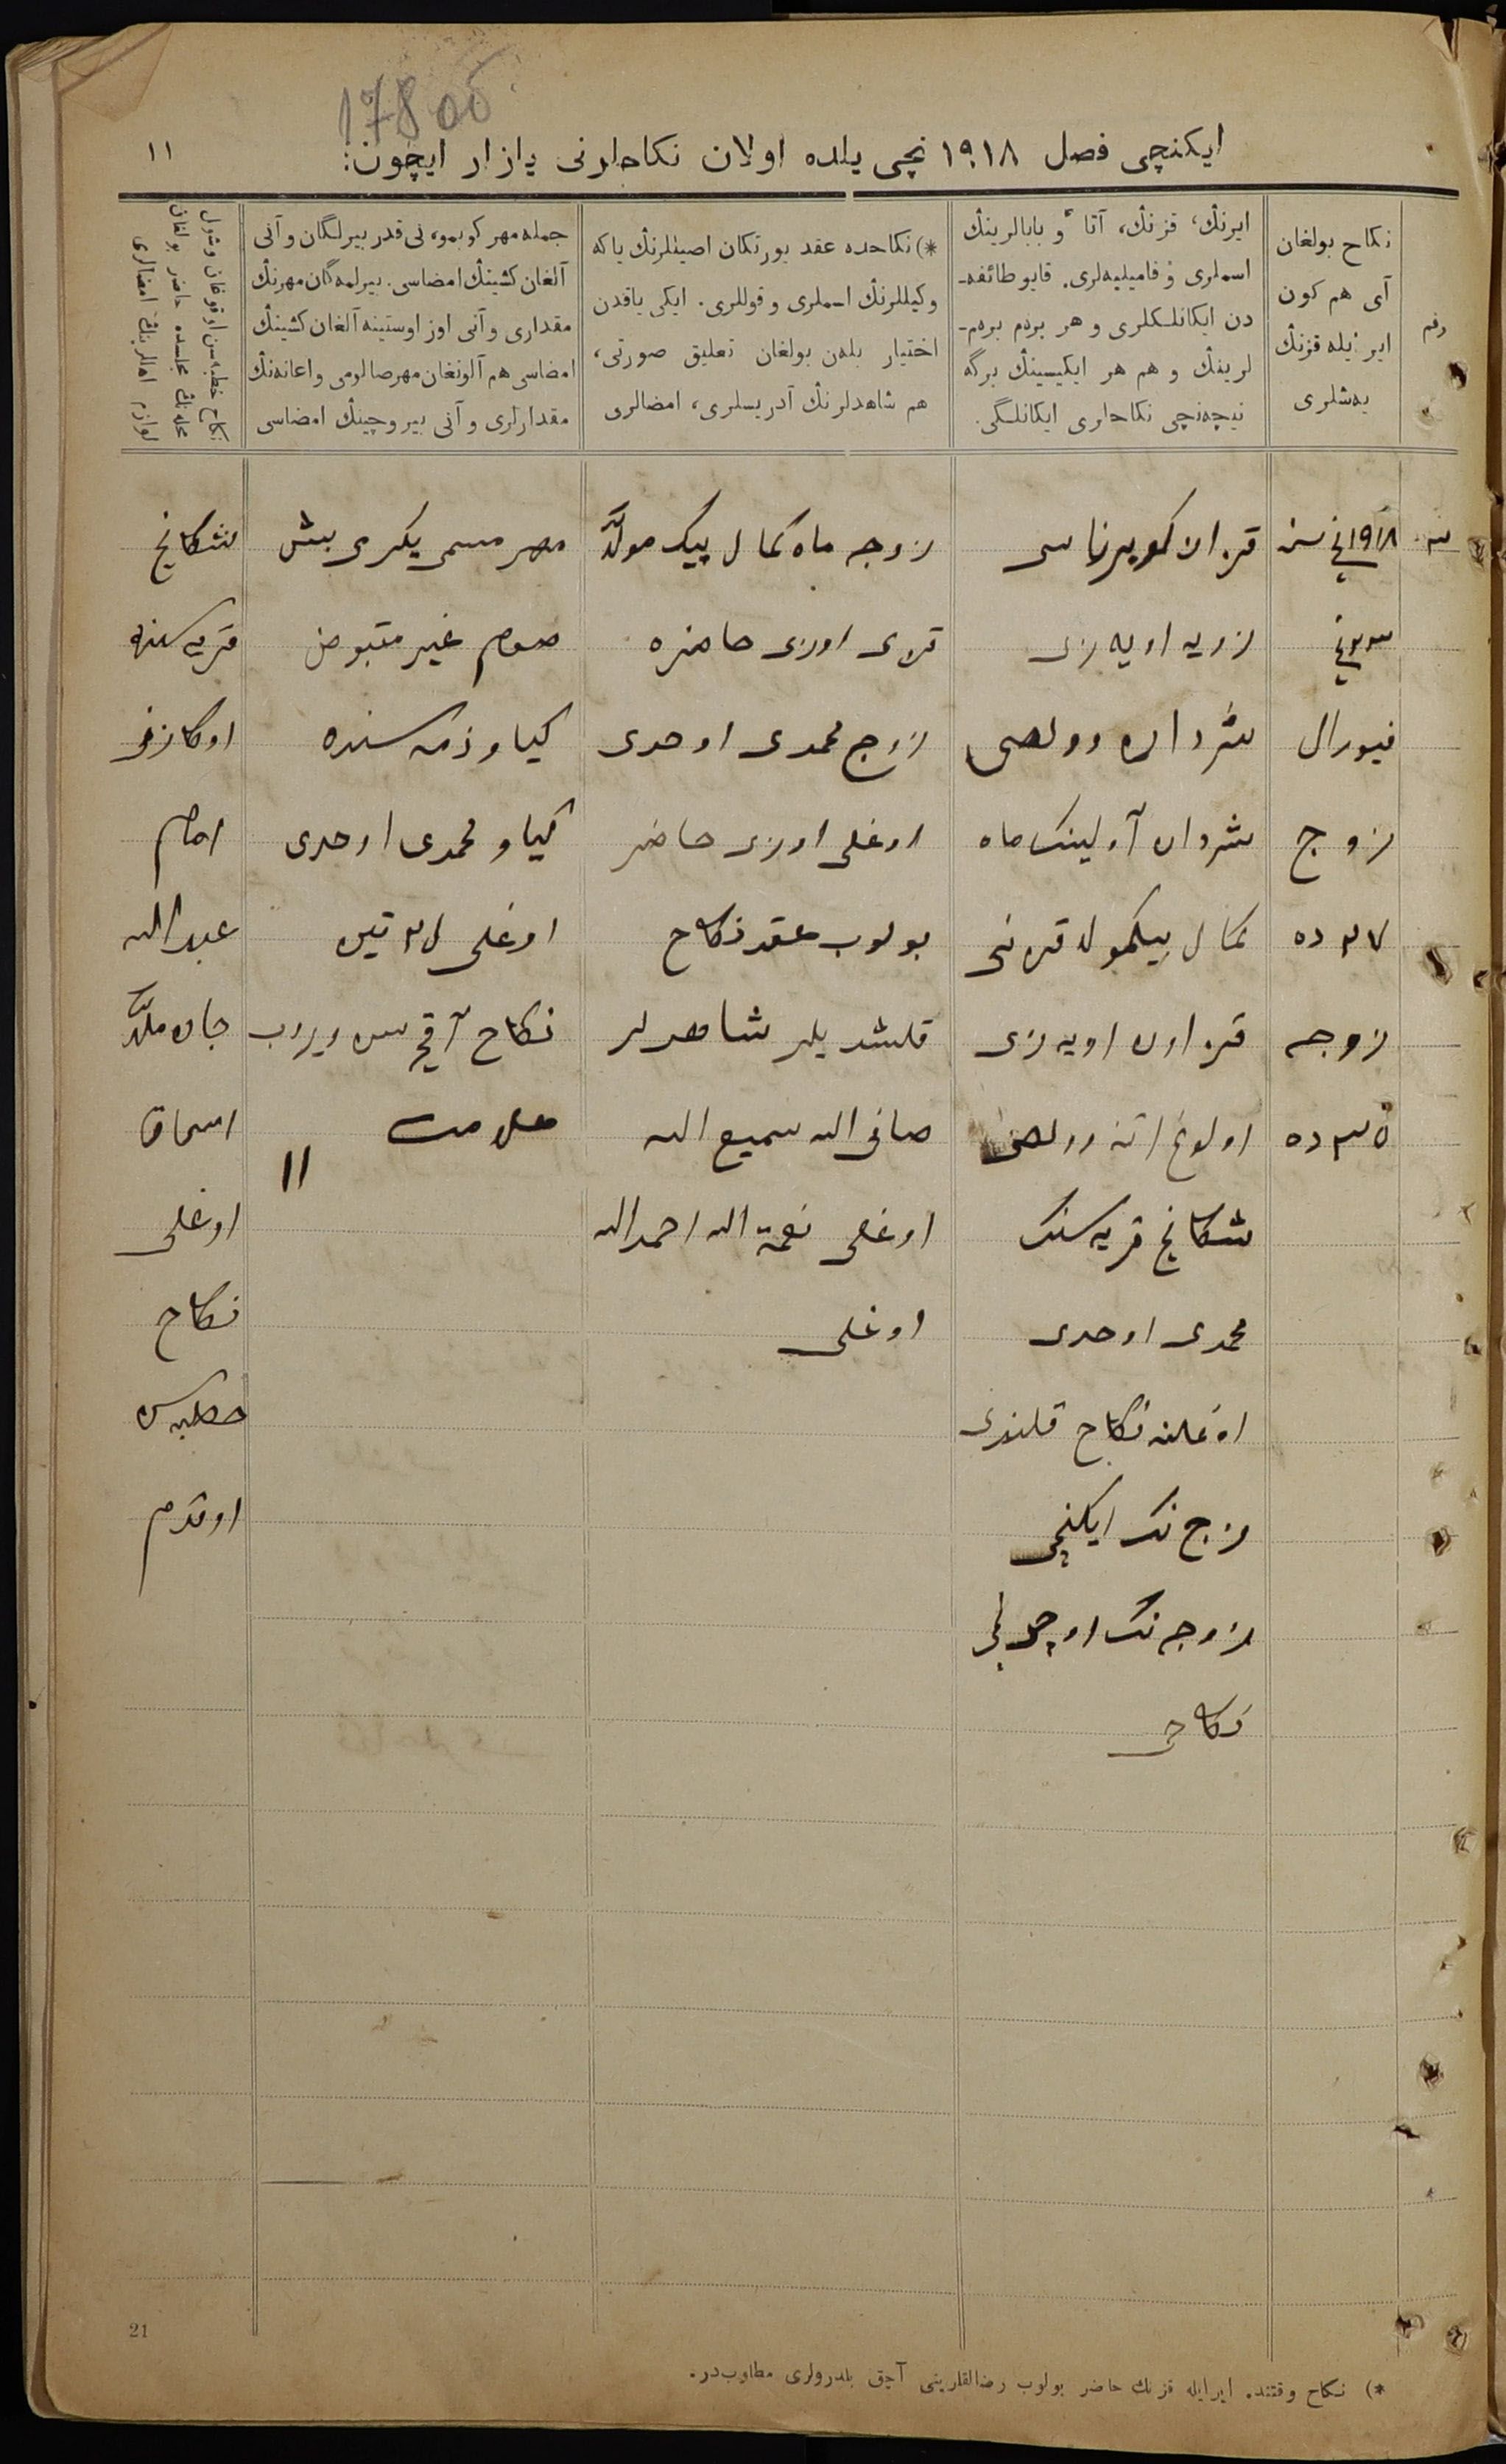 17800
ايكنچی فصل ١٩١٨ نچی يلده اولان نكاحلرنی يازار ايچون:
١١
رقم
نكاح بولغان
آی هم كون
اير ئيله قزنڭ
يه‌شلری
ايرنڭ، قزنڭ، آتا و بابالرينڭ
اسملری و فاميليه‌لری. قايو طائفه‌ـ
دن ايكانلكلری و هر بردم بردم‌ـ
لرينڭ و هم هر ايكيسينڭ برگه
نيچه‌نچی نكاحلری ايكانلگی.
*) نكاحده عقد يورتكان اصيللرنڭ ياكه
وكيللرنڭ اسملری و قوللری. ايكی ياقدن
اختيار بله‌ن بولغان تعليق صورتی،
هم شاهدلرنڭ آدريسلری، امضالری
جمله مهر كوبمو، نی قدر بيرلگان و آنی
آلغان كشينڭ امضاسی. بيرلمه‌گان مهرنڭ
مقداری و آنی اوز اوستينه آلغان كشينڭ
امضاسی هم آلونغان مهر صالومی و اعانه‌نڭ
مقدارلری و آنی بيروچينڭ امضاسی
نكاح خطبه‌سن اوقوغان و شول
محله‌نڭ مجلسده حاضر بولغان
لوازم اهاليلرنڭ امضالری
٣
١٩١٨ نچی سنه
فيورال
زوج
ده
زوجه
ده
قزان كوبيرناسی
اويه‌زی
شردان وولصی
شردان آولينك ماه
كمال بيكمولد قزنی
قزان اويه‌زی
وولصی
شكانچ قريه‌سنك
محمدی اوحدی
اوغلنه نكاح قلندی
زوج نك ايكنچی
زوجه نك اوچونچی
نكاحی
زوجه ماه كمال بيك مولد
قزی اوزی حاضره
زوج محمدی اوحدی
اوغلی اوزی حاضر
بولوب عقد نكاح
قلشديلر شاهدلر
صافی الله سميع الله
اوغلی نعمة الله احمدالله
اوغلی
مهر مسمی يكرمی بش
صوم غير مقبوض
كياو ذمه‌سنده
كياو محمدی اوحدی
اوغلی تين
نكاح آقچه‌سن ويروب
علامت
١١
شكانچ
قريه‌سنه
اوكازنو
امام
عبدالله
جان ملد
اسحاق
اوغلی
نكاح
خطبه‌سن
اوقدم
21
*) نكاح وقتنده. اير ايله قزنك حاضر بولوب رضالقلرينی آچق بلدرولری مطلوبدر.